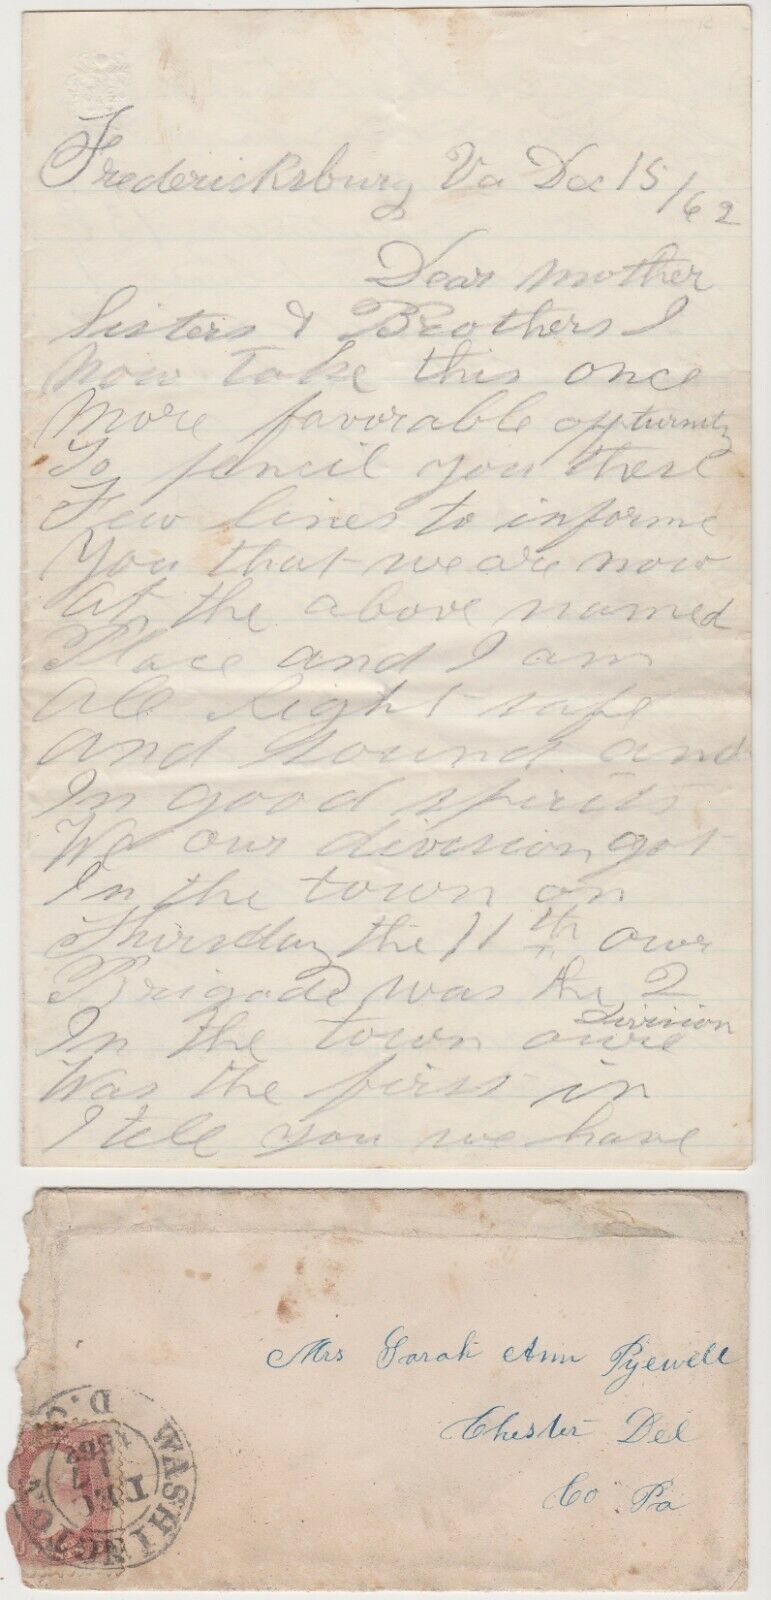 Fredericksburg Va Dec 15/62
Dear Mother
Sisters & Brothers I
Now take this once
More favorable oppturnity
To pencil you these
Few lines to informe
You that we are now
At the above named
Place and I am
All right safe
and sound and
In good spirits
We our division got
In the town on
Thirsday the 11th owr
Brigade was the 2
In the town owre Division
Was the first in
I tell you we have
Mrs Sarah Ann Pyewell
Chester Del
Co Pa
WASHINGTON D.C.
17
1862